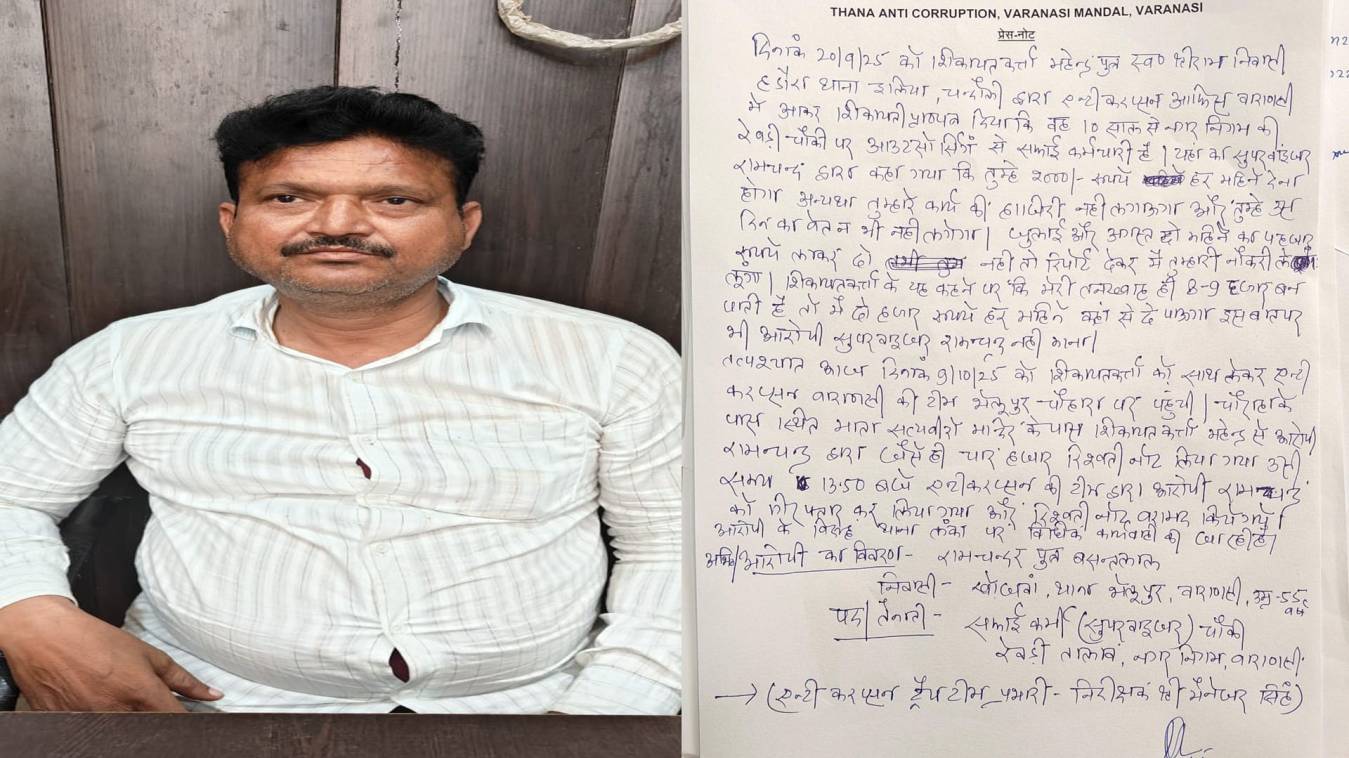 THANA ANTI CORRUPTION, VARANASI MANDAL, VARANASI
प्रेस-नोट
दिनांक 20/9/25 को शिकायतकर्ता महेन्द्र पुत्र स्व० श्रीराम निवासी
हडौरा थाना इलिया, चन्दौली द्वारा एन्टी करप्सन आफिस वाराणसी
मे आकर शिकायती प्रा०पत्र दिया कि वह 10 साल से नगर निगम की
रेवड़ी चौकी पर आउटसोर्सिंग से सफाई कर्मचारी है। यहां का सुपरवाइजर
रामचन्द्र द्वारा कहा गया कि तुम्हे 2000/- रूपये हर महिने देना
होगा अन्यथा तुम्हारे कार्य की हाजिरी नही लगाऊगा और तुम्हे उस
दिन का वेतन भी नही लगेगा। जुलाई और अगस्त दो महिने का
रूपये लाकर दो नही तो रिपोर्ट देकर मै तुम्हारी नौकरी ले
लूंगा। शिकायतकर्ता के यह कहने पर कि मेरी तनख्वाह ही 8-9 हजार बन
पाती है तो मै दो हजार रूपये हर महिने कहां से दे पाऊगा इस बात पर
भी आरोपी सुपरवाइजर रामचन्द्र नही माना।
तत्पश्चात आज दिनांक 9/10/25 को शिकायतकर्ता को साथ लेकर एन्टी
करप्सन वाराणसी की टीम भेलूपुर चौराहा पर पहुंची। चौराहा के
पास स्थित माता सत्यवीरो मन्दिर के पास शिकायतकर्ता महेन्द्र से आरोपी
रामचन्द्र द्वारा जैसे ही चार हजार रिश्वती नोट लिया गया उसी
समय 13:50 बजे एन्टी करप्सन की टीम द्वारा आरोपी रामचन्द्र
को गिरफ्तार कर लिया गया और रिश्वती नोट बरामद किये गये।
आरोपी के विरूद्ध थाना लंका पर विधिक कार्यवाही की जा रही है।
आरोपी का विवरण- रामचन्दर पुत्र बसन्तलाल
निवासी- खोजवां, थाना भेलूपुर, वाराणसी, उम्र-55 वर्ष
पद/तैनाती- सफाई कर्मी (सुपरवाइजर) चौकी
रेवड़ी तालाब, नगर निगम, वाराणसी
→ (एन्टी करप्सन ट्रैप टीम प्रभारी- निरीक्षक श्री मैनेजर सिंह)